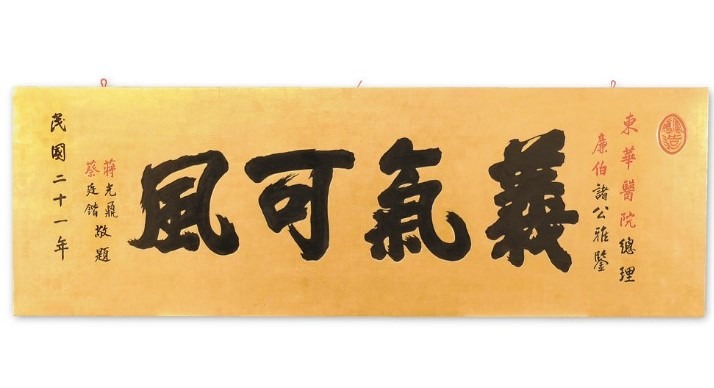 東華醫院總理
廉伯諸公雅鑒
義氣可風
蔣光鼐
蔡廷鍇
敬題
民國二十一年